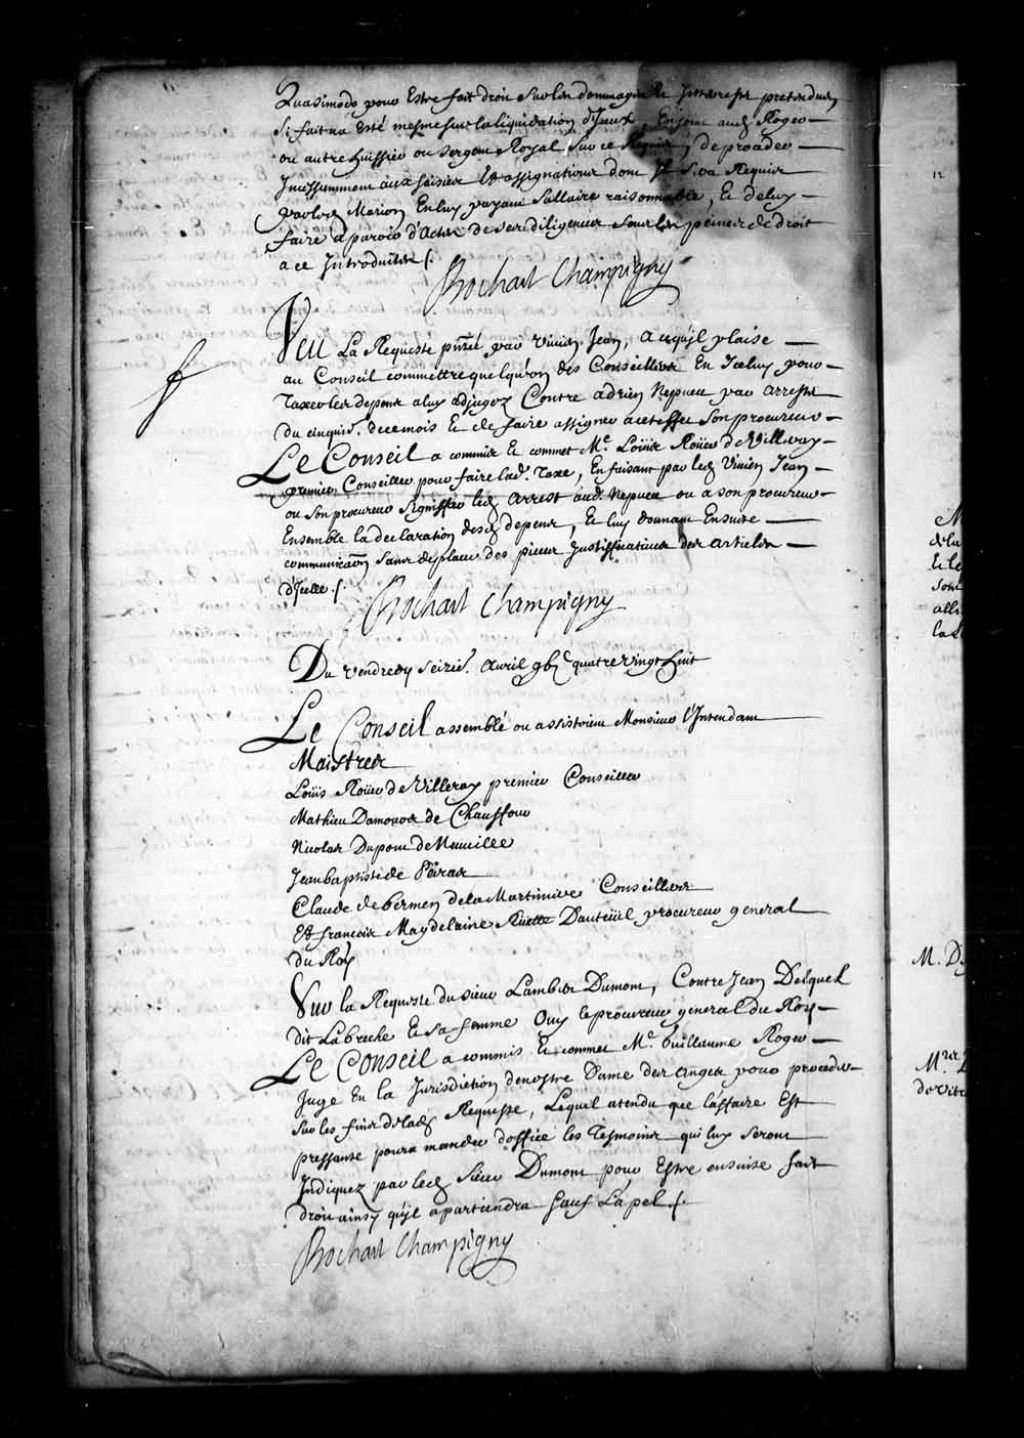 Quasimodo pour Estre fait droit sur les dommages et Interests pretendus
Si fait na Esté mesme sur la liquidation d'Jceux, Enjoint aud. Roger
ou autre huissier ou sergent Royal sur ce Requis, de proceder
Incessamment aux saisies Et assignations dont Il sera Requis
par led. Marion En luy payant sallaire raisonnable, Et de luy
faire aparoir d'Actes de ses diligences sous les peines de droit
a ce Introduites ./.
Bochart Champigny
Veu La Requeste pñtée par Vivien Jean, a ce qu'jl plaise
au Conseil commettre quelqu'un des Conseillers En Jceluy pour
Taxer les depens a luy adjugez Contre adrien Nepveu par arrest
du cinquie. de ce mois Et de faire assigner a cet effet son procureur
Le Conseil a commis Et commet Me. Loüis Roüer de Villeray
premier Conseiller pour faire lad. Taxe, En faisant par led. Vivien Jean
ou son procureur signiffier led. arrest aud. Nepveu ou a son procureur
Ensemble la declaration desd. depens, Et luy donnant Ensuite
communicaõn sans desplacer des pieces Justifficatives des articles
d'Jcelle ./.
Bochart Champigny
Du vendredy seizie. avril gbjc quatre vingt huit
Le Conseil assemblé ou assistoient Monsieur l'Intendant
Maistres
Loüis Roüer de Villeray premier Conseiller
Mathieu Damours de Chauffour
Nicolas Dupont de Neuville
Jean baptiste de Peiras
Claude de bermen de la Martiniere Conseillers
Et francois Magdelaine Rüette Dauteüil procureur general
du Roy
Sur la Requeste du sieur Lambert Dumont, Contre Jean Delquel
dit Labreche Et sa femme Ouy le procureur general du Roy
Le Conseil a commis Et commet Me. Guillaume Roger
Juge En la Jurisdiction de nostre Dame des anges pour proceder
sur les fins de lad. Requeste, Lequel atendu que l'affaire Est
pressante poura mander d'office les Tesmoins qui luy seront
Indiquez par led. sieur Dumont pour Estre ensuite fait
droit ainsy qu'jl apartiendra sauf L'apel ./.
Bochart Champigny